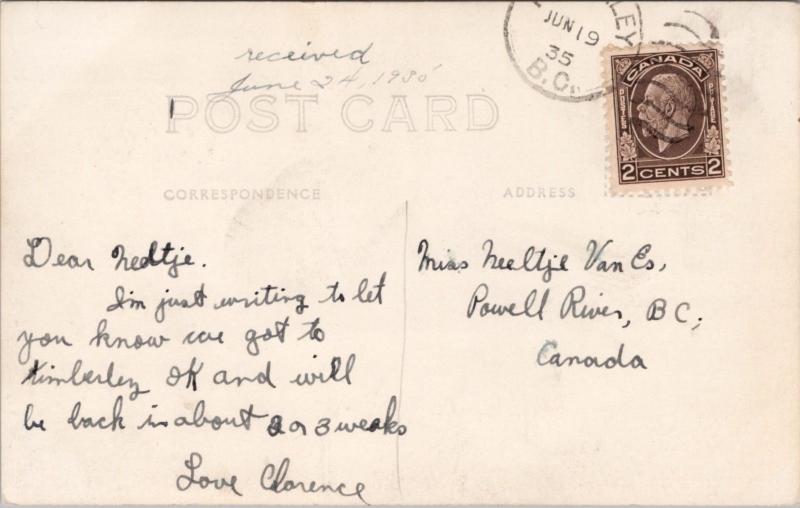 received
June 24, 1935
POST CARD
CORRESPONDENCE
ADDRESS
LEY
JUN 19
35
B.C.
CANADA
2 CENTS 2
Dear Neeltje.
I'm just writing to let
you know we got to
Kimberley OK and will
be back in about 2 or 3 weeks
Love Clarence
Miss Neeltje Van Es,
Powell River, BC,
Canada